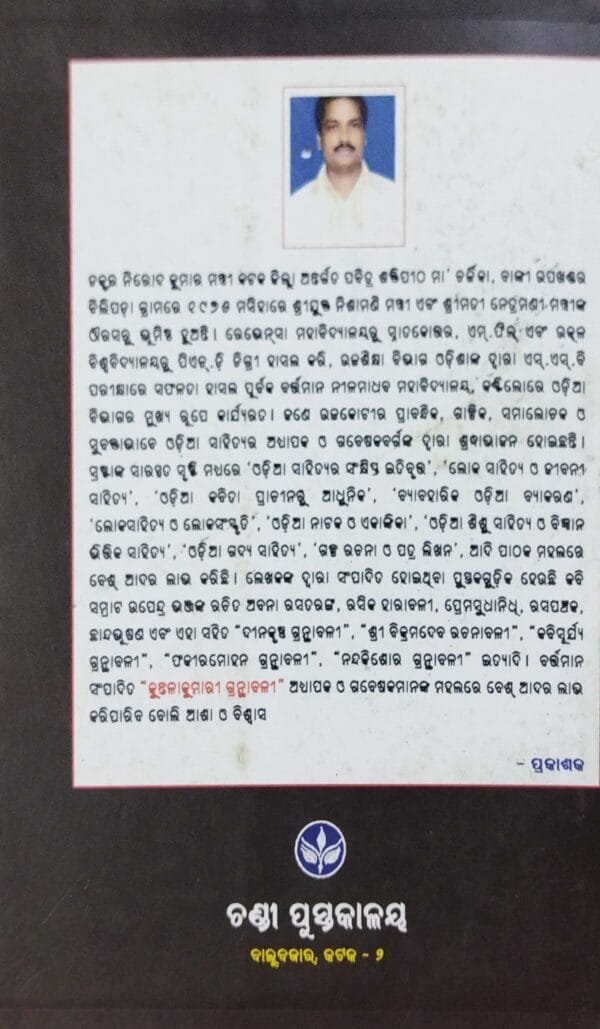 ଡକ୍ଟର ନିରୋଦ କୁମାର ମନ୍ତ୍ରୀ କଟକ ଜିଲ୍ଲା ଅନ୍ତର୍ଗତ ପବିତ୍ର ଶକ୍ତିପୀଠ ମା' ଚର୍ଚ୍ଚିକା, ବାଙ୍କୀ ଉପଖଣ୍ଡର
ବିଲିପଡ଼ା ଗ୍ରାମରେ ୧୯୭୫ ମସିହାରେ ଶ୍ରୀଯୁକ୍ତ ନିଶାମଣି ମନ୍ତ୍ରୀ ଏବଂ ଶ୍ରୀମତୀ ନେତ୍ରମଣୀ ମନ୍ତ୍ରୀଙ୍କ
ଔରସରୁ ଭୂମିଷ୍ଠ ହୁଅନ୍ତି । ରେଭେନ୍ସା ମହାବିଦ୍ୟାଳୟରୁ ସ୍ନାତକୋତ୍ତର, ଏମ୍.ଫିଲ୍ ଏବଂ ଉତ୍କଳ
ବିଶ୍ୱବିଦ୍ୟାଳୟରୁ ପିଏଚ୍.ଡ଼ି ଡିଗ୍ରୀ ହାସଲ କରି, ଉଚ୍ଚଶିକ୍ଷା ବିଭାଗ ଓଡ଼ିଶାଙ୍କ ଦ୍ୱାରା ଏସ୍.ଏସ୍.ବି
ପରୀକ୍ଷାରେ ସଫଳତା ହାସଲ ପୂର୍ବକ ବର୍ତ୍ତମାନ ନୀଳମାଧବ ମହାବିଦ୍ୟାଳୟ, କଣ୍ଟିଲୋରେ ଓଡ଼ିଆ
ବିଭାଗର ମୁଖ୍ୟ ରୂପେ କାର୍ଯ୍ୟରତ । ଜଣେ ଉଚ୍ଚକୋଟୀର ପ୍ରାବନ୍ଧିକ, ଗାଳ୍ପିକ, ସମାଲୋଚକ ଓ
ସୁବକ୍ତାଭାବେ ଓଡ଼ିଆ ସାହିତ୍ୟର ଅଧ୍ୟାପକ ଓ ଗବେଷକବର୍ଗଙ୍କ ଦ୍ୱାରା ଶ୍ରଦ୍ଧାଭାଜନ ହୋଇଛନ୍ତି ।
ସ୍ରଷ୍ଟାଙ୍କ ସାରସ୍ୱତ ସୃଷ୍ଟି ମଧ୍ୟରେ 'ଓଡ଼ିଆ ସାହିତ୍ୟର ସଂକ୍ଷିପ୍ତ ଇତିବୃତ୍ତ', 'ଲୋକ ସାହିତ୍ୟ ଓ ଜୀବନୀ
ସାହିତ୍ୟ', 'ଓଡ଼ିଆ କବିତା ପ୍ରାଚୀନରୁ ଆଧୁନିକ', 'ବ୍ୟାବହାରିକ ଓଡ଼ିଆ ବ୍ୟାକରଣ',
'ଲୋକସାହିତ୍ୟ ଓ ଲୋକସଂସ୍କୃତି', 'ଓଡ଼ିଆ ନାଟକ ଓ ଏକାଙ୍କିକା', 'ଓଡ଼ିଆ ଶିଶୁ ସାହିତ୍ୟ ଓ ବିଜ୍ଞାନ
ଭିତ୍ତିକ ସାହିତ୍ୟ', 'ଓଡ଼ିଆ ଗଦ୍ୟ ସାହିତ୍ୟ', 'ଗଳ୍ପ ରଚନା ଓ ପତ୍ର ଲିଖନ', ଆଦି ପାଠକ ମହଲରେ
ବେଶ୍ ଆଦର ଲାଭ କରିଛି । ଲେଖକଙ୍କ ଦ୍ୱାରା ସଂପାଦିତ ହୋଇଥିବା ପୁସ୍ତକଗୁଡ଼ିକ ହେଉଛି କବି
ସମ୍ରାଟ ଉପେନ୍ଦ୍ର ଭଞ୍ଜଙ୍କ ରଚିତ ଅବନା ରସତରଙ୍ଗ, ରସିକ ହାରାବଳୀ, ପ୍ରେମସୁଧାନିଧି, ରସପଞ୍ଚକ,
ଛାନ୍ଦଭୂଷଣ ଏବଂ ଏହା ସହିତ "ଦୀନକୃଷ୍ଣ ଗ୍ରନ୍ଥାବଳୀ", "ଶ୍ରୀ ବିକ୍ରମଦେବ ରଚନାବଳୀ", "କବିସୂର୍ଯ୍ୟ
ଗ୍ରନ୍ଥାବଳୀ", "ଫକୀରମୋହନ ଗ୍ରନ୍ଥାବଳୀ", "ନନ୍ଦକିଶୋର ଗ୍ରନ୍ଥାବଳୀ" ଇତ୍ୟାଦି । ବର୍ତ୍ତମାନ
ସଂପାଦିତ "କୁନ୍ତଳାକୁମାରୀ ଗ୍ରନ୍ଥାବଳୀ" ଅଧ୍ୟାପକ ଓ ଗବେଷକମାନଙ୍କ ମହଲରେ ବେଶ୍ ଆଦର ଲାଭ
କରିପାରିବ ବୋଲି ଆଶା ଓ ବିଶ୍ୱାସ
- ପ୍ରକାଶକ
ଚଣ୍ଡୀ ପୁସ୍ତକାଳୟ
ବାଲୁବଜାର, କଟକ - ୨